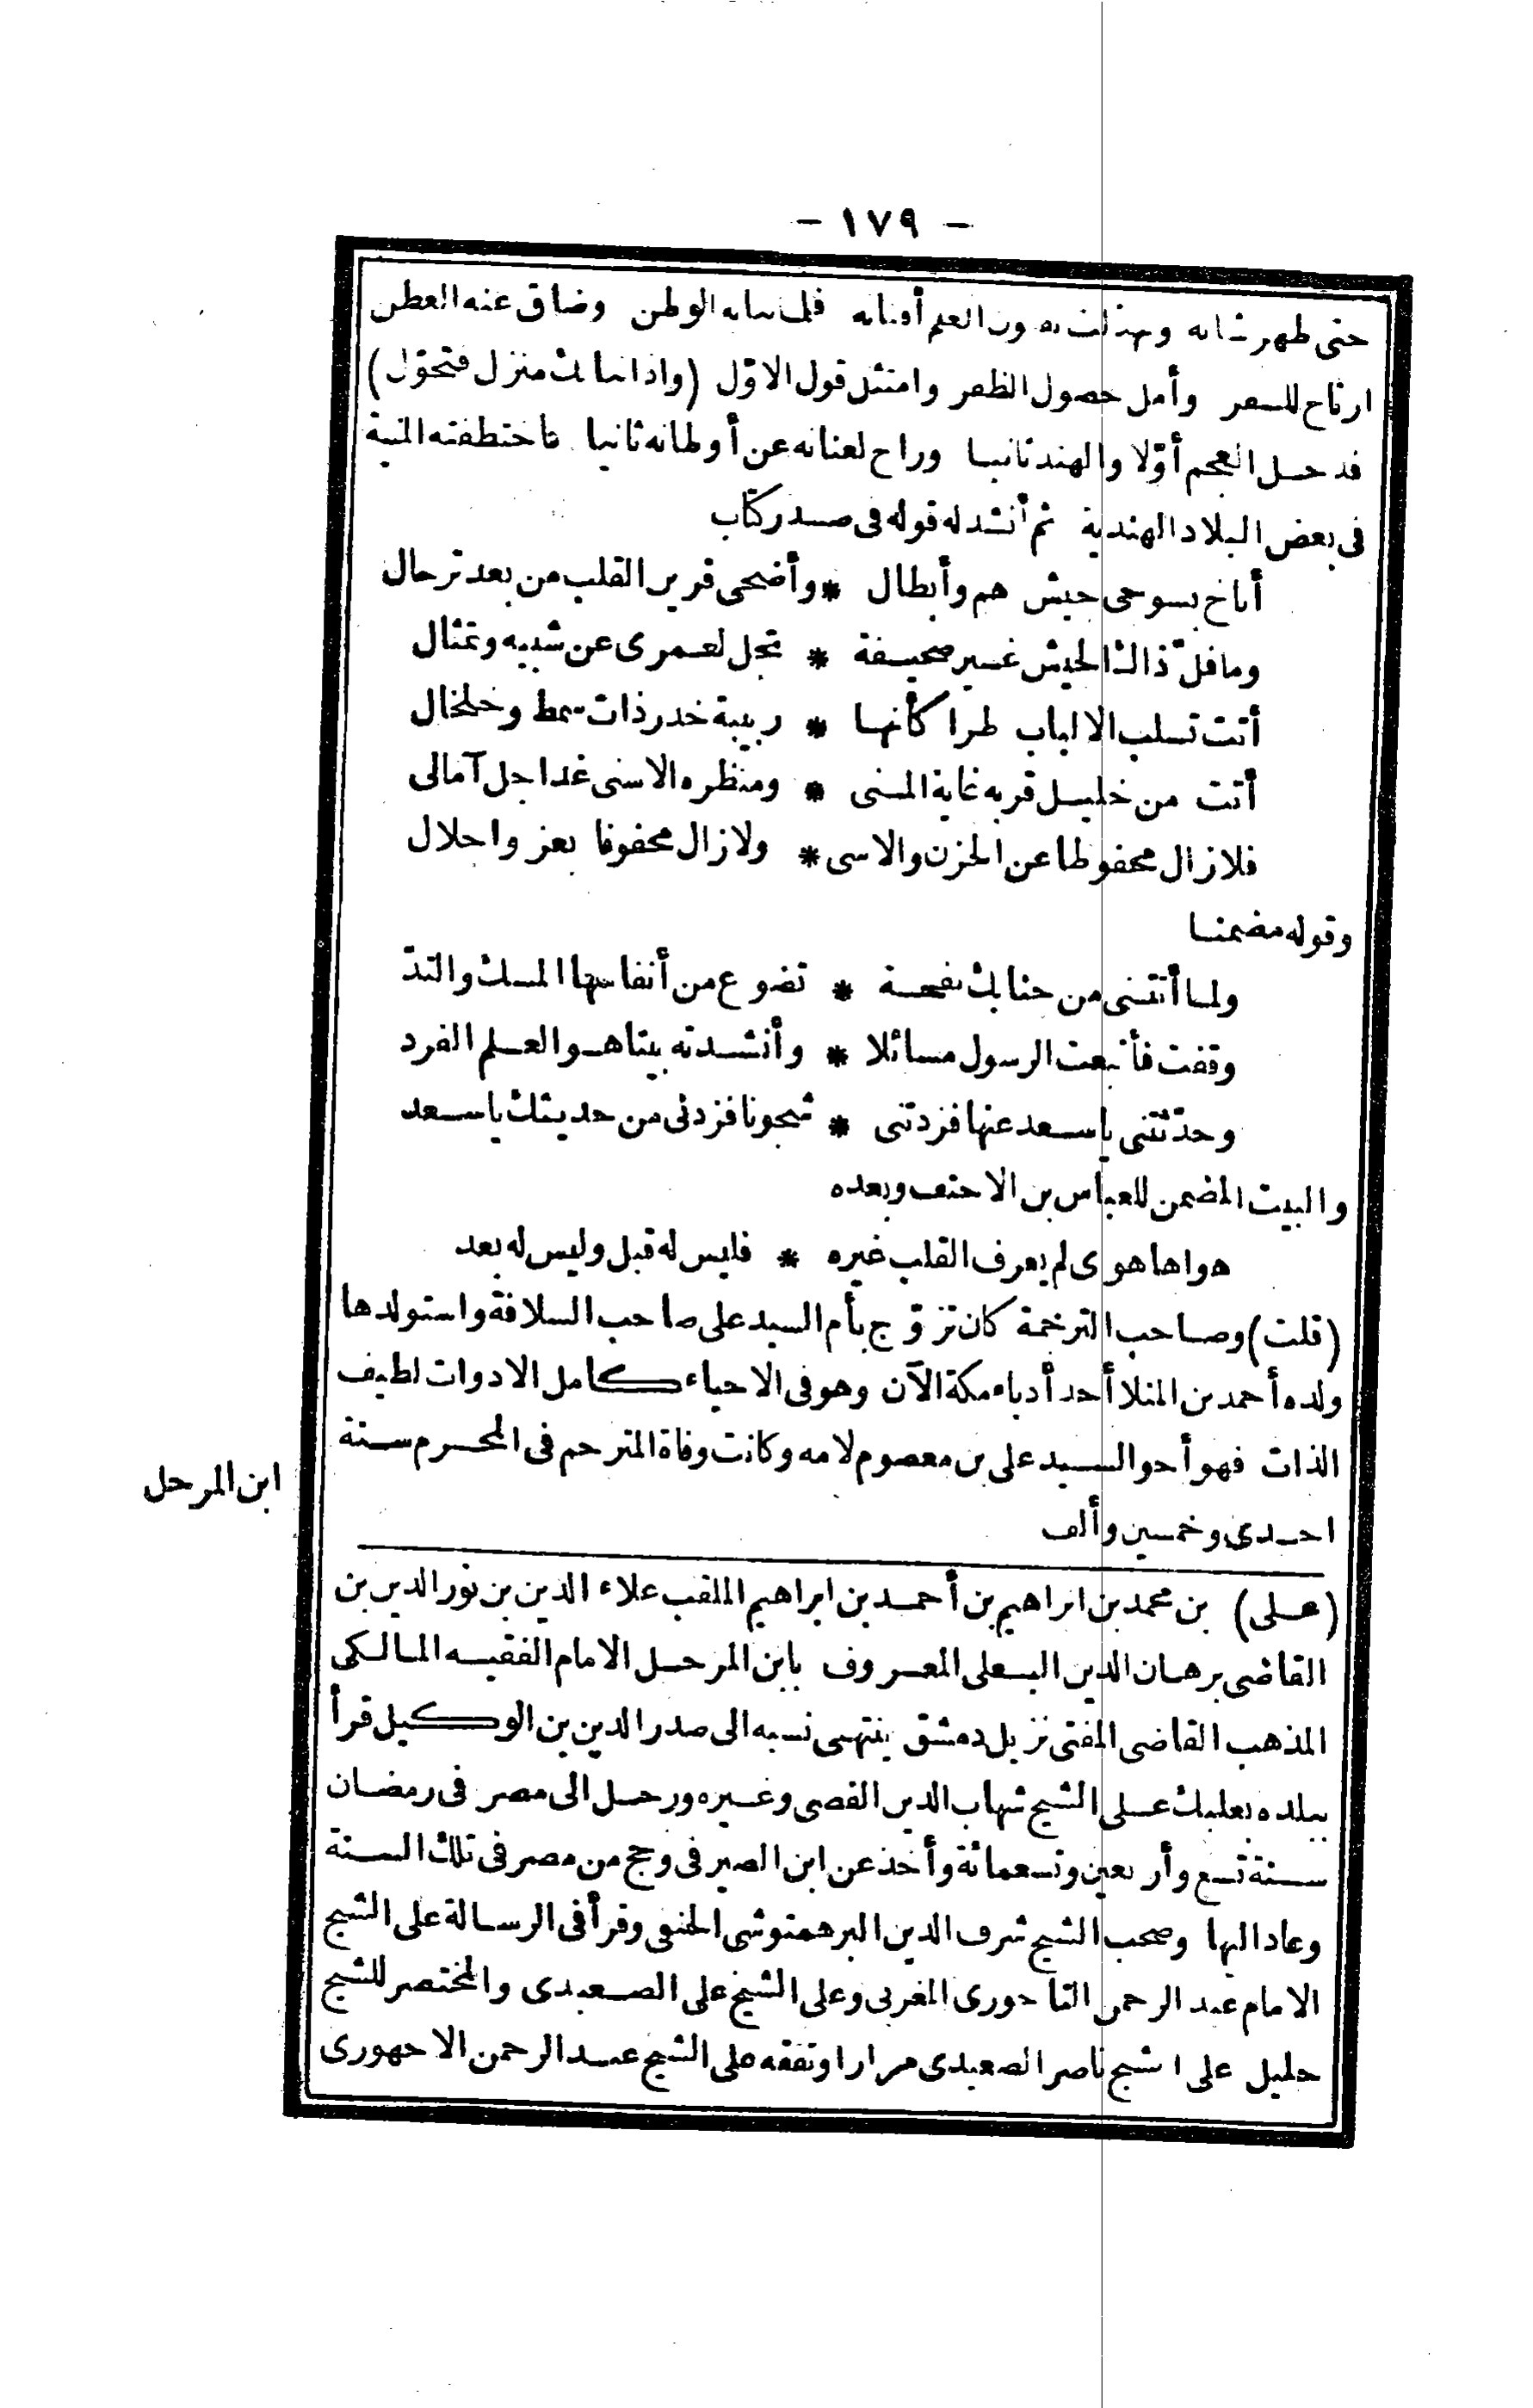 - ١٧٩ -
حتى ظهر شانه وتهدلت به من العلم أفنانه فلما نبا به الوطن وضاق عنه العطن
ارتاح للسفر وأمل حصول الظفر وامتثل قول الاوّل (واذا نبا بك منزل فتحوّل)
فدخل العجم أوّلا والهند ثانيا وراح لعنانه عن أوطانه ثانيا فاختطفته المنية
فى بعض البلاد الهندية ثم أنشد له قوله فى صدر كتاب
أناخ بسوحى جيش هم وأبطال * وأضحى قرير القلب من بعد ترحال
وما فلّ ذاك الجيش غير صحيفة * تجل لعمرى عن شبيه وتمثال
أتت تسلب الالباب طرا كأنها * ربيبة خدر ذات سمط وخلخال
أتت من خليل قربه غاية المنى * ومنظره الاسنى غدا جل آمالى
فلا زال محفوظا عن الحزن والاسى * ولا زال محفوفا بعز واجلال
وقوله مضمنا
ولما أتتنى من جنابك نفحة * تضوع من أنفاسها المسك والندّ
وقفت فأتبعت الرسول مسائلا * وأنشدته بيتا هو العلم الفرد
وحدّثتنى ياسعد عنها فزدتنى * شجونا فزدنى من حديثك ياسعد
والبيت المضمن للعباس بن الاحنف وبعده
هواها هوى لم يعرف القلب غيره * فليس له قبل وليس له بعد
(قلت) وصاحب الترجمة كان تزوّج بأم السيد على صاحب السلافة واستولدها
ولده أحمد بن المنلا أحد أدباء مكة الآن وهو فى الاحياء كامل الادوات لطيف
الذات فهو أخو السيد على بن معصوم لامه وكانت وفاة المترجم فى المحرم سنة
احدى وخمسين وألف
ابن المرحل
(على) بن محمد بن ابراهيم بن أحمد بن ابراهيم الملقب علاء الدين بن نور الدين بن
القاضى برهان الدين البعلى المعروف بابن المرحل الامام الفقيه المالكى
المذهب القاضى المفتى نزيل دمشق ينتهى نسبه الى صدر الدين بن الوكيل قرأ
ببلده بعلبك على الشيخ شهاب الدين الفصى وغيره ورحل الى مصر فى رمضان
سنة تسع وأربعين وتسعمائة وأخذ عن ابن الصيرفى وحج من مصر فى تلك السنة
وعاد اليها وصحب الشيخ شرف الدين البرهمتوشى الحنفى وقرأ فى الرسالة على الشيخ
الامام عبد الرحمن التاجورى المغربى وعلى الشيخ على الصعيدى والمختصر للشيخ
خليل على الشيخ ناصر الصعيدى مرارا وتفقه على الشيخ عبد الرحمن الاجهورى